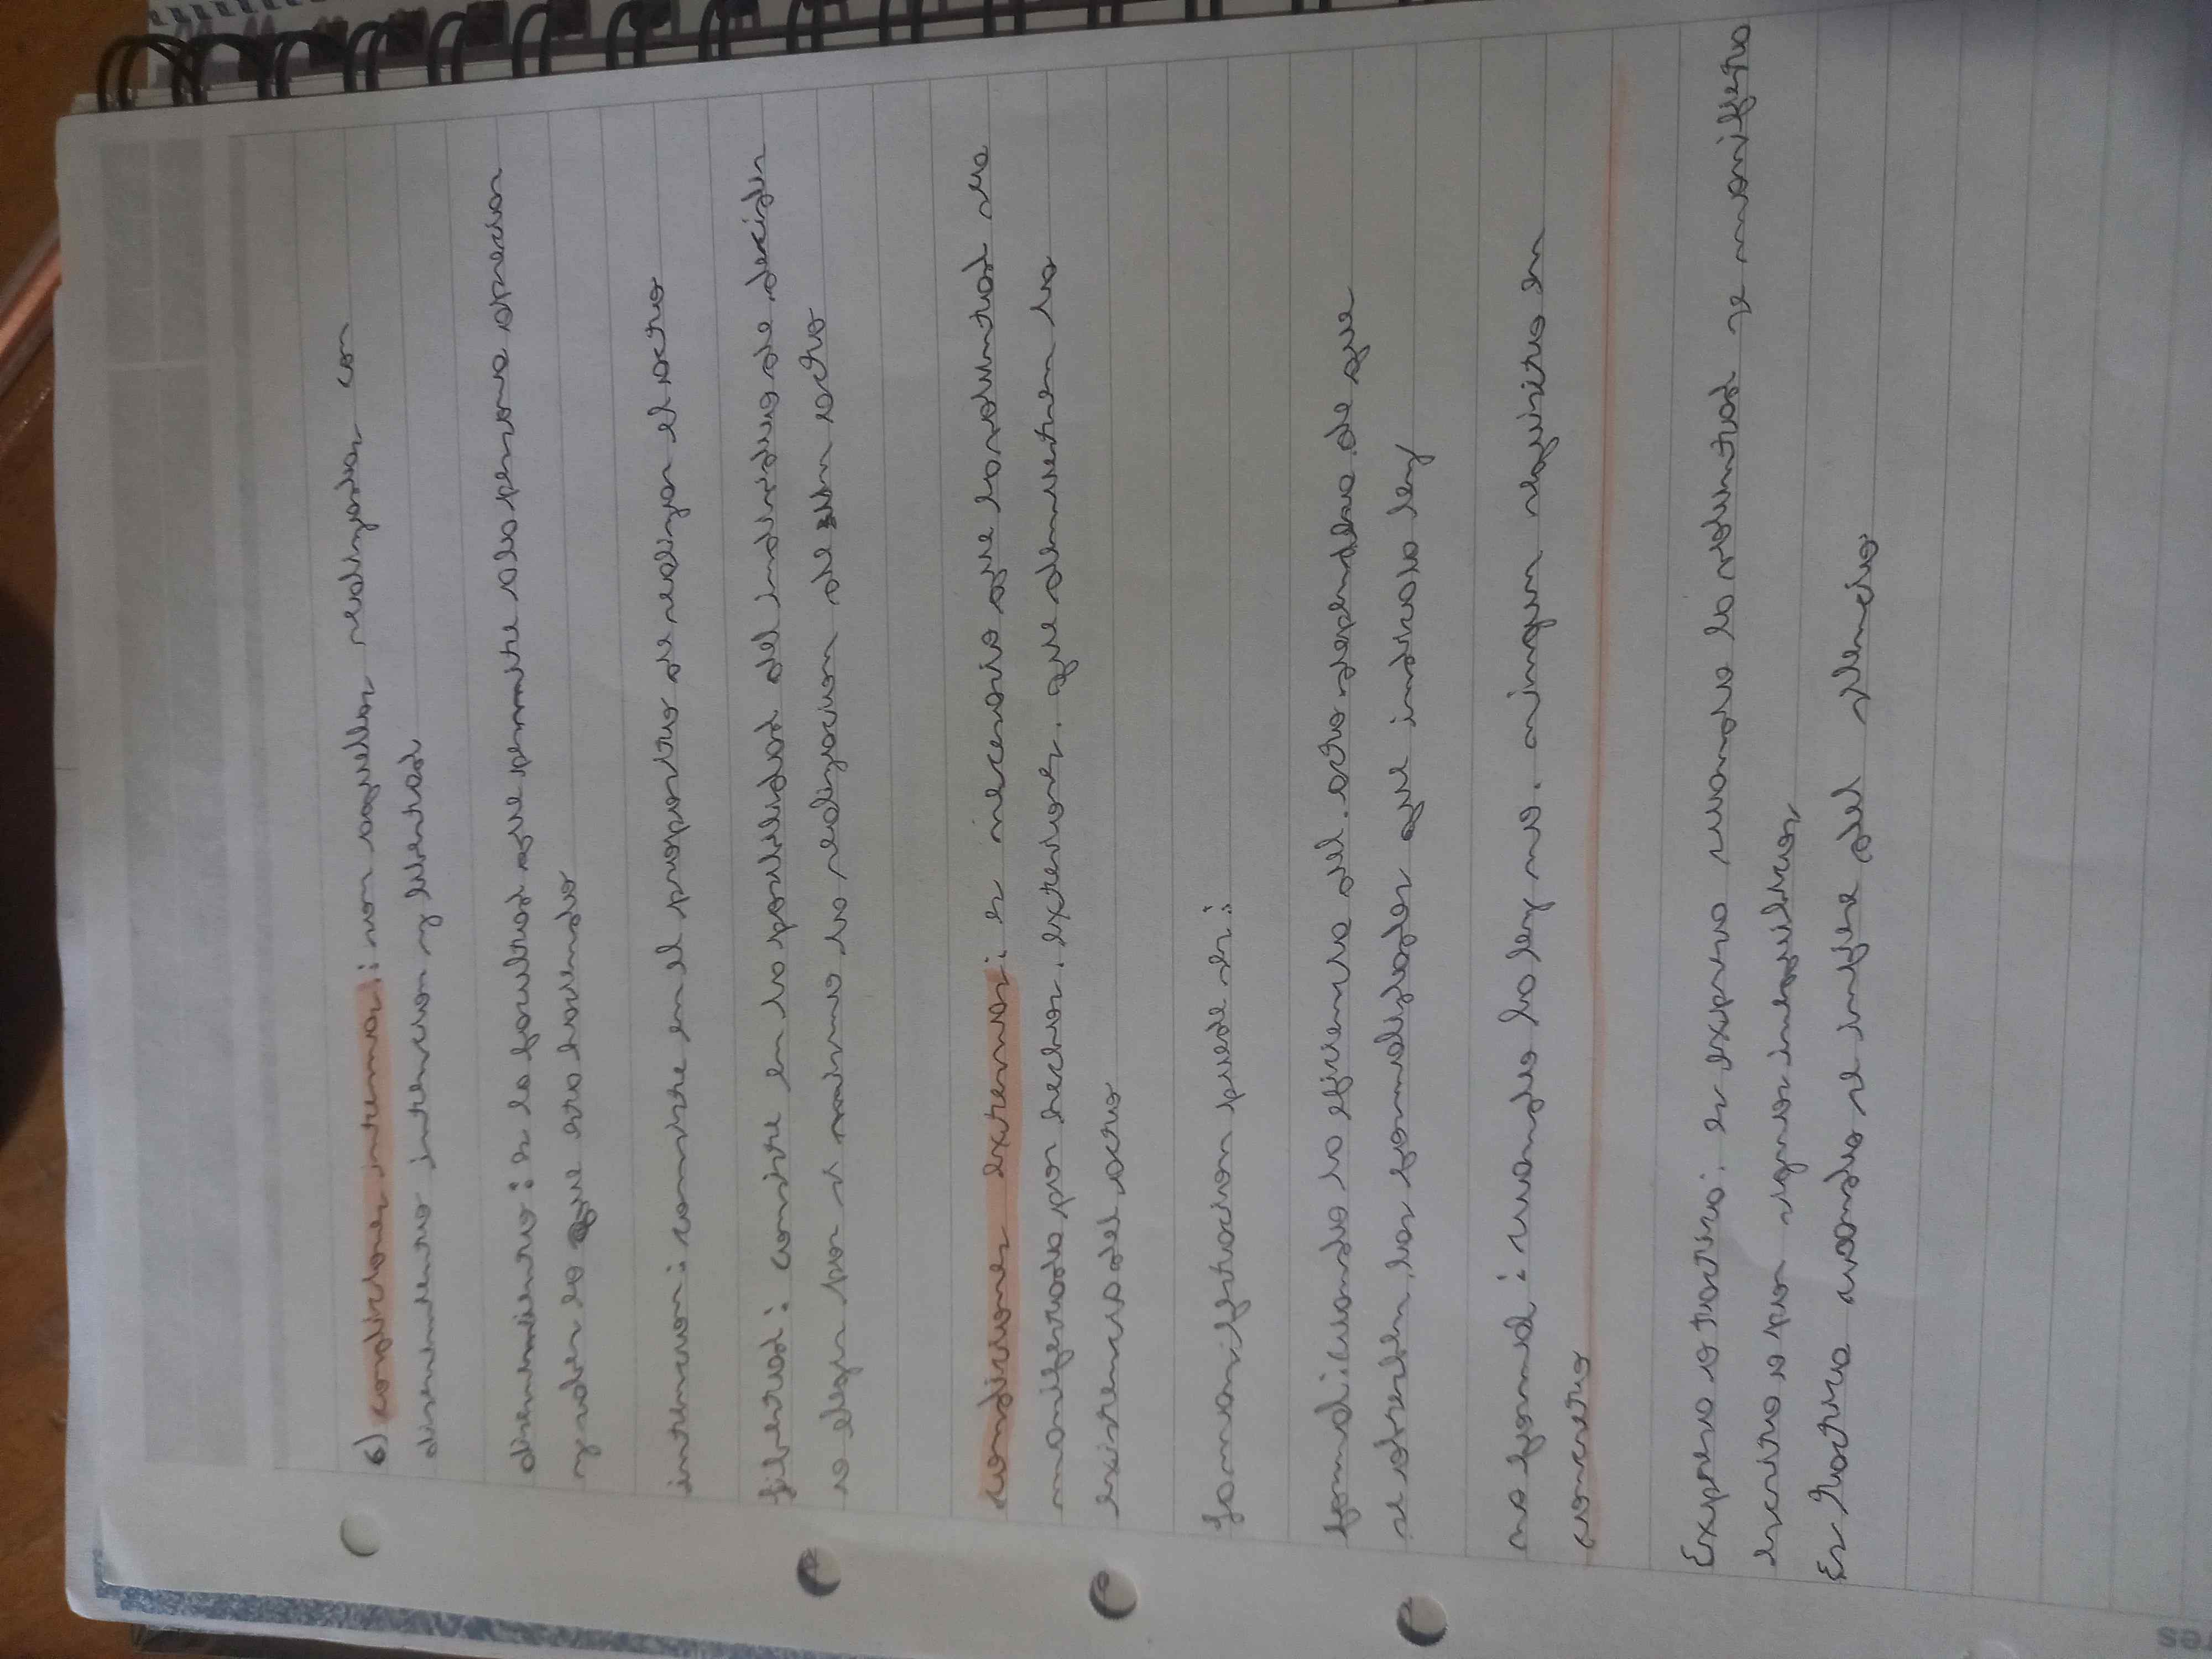 6) condiciones internas: son aquellos realizados con
disernimiento intencion y libertad
disernimiento: es la facultad que permite a la persona apreciar
y saber lo que sta haciendo
intencion: consiste en el proposito de realizar el acto
libertad: consiste en la posibilidad del individuo de decidir
o elegir por si mismo la realizacion de un acto
condiciones externas: es necesario que la voluntad sea
manifestada por hechos exteriores. que demuestren la
existencia del acto
la manifestacion puede ser:
formal: cuando la eficiencia del acto dependera de que
se obserben las formalidades que indica la ley
no formal: cuando la ley no. ningun requisito en
concreto
Expresa o tacita: es expresa cuando la voluntad se manifiesta
escrito o por signos inequibicos
Es tacita cuando se infiere del silencio
res